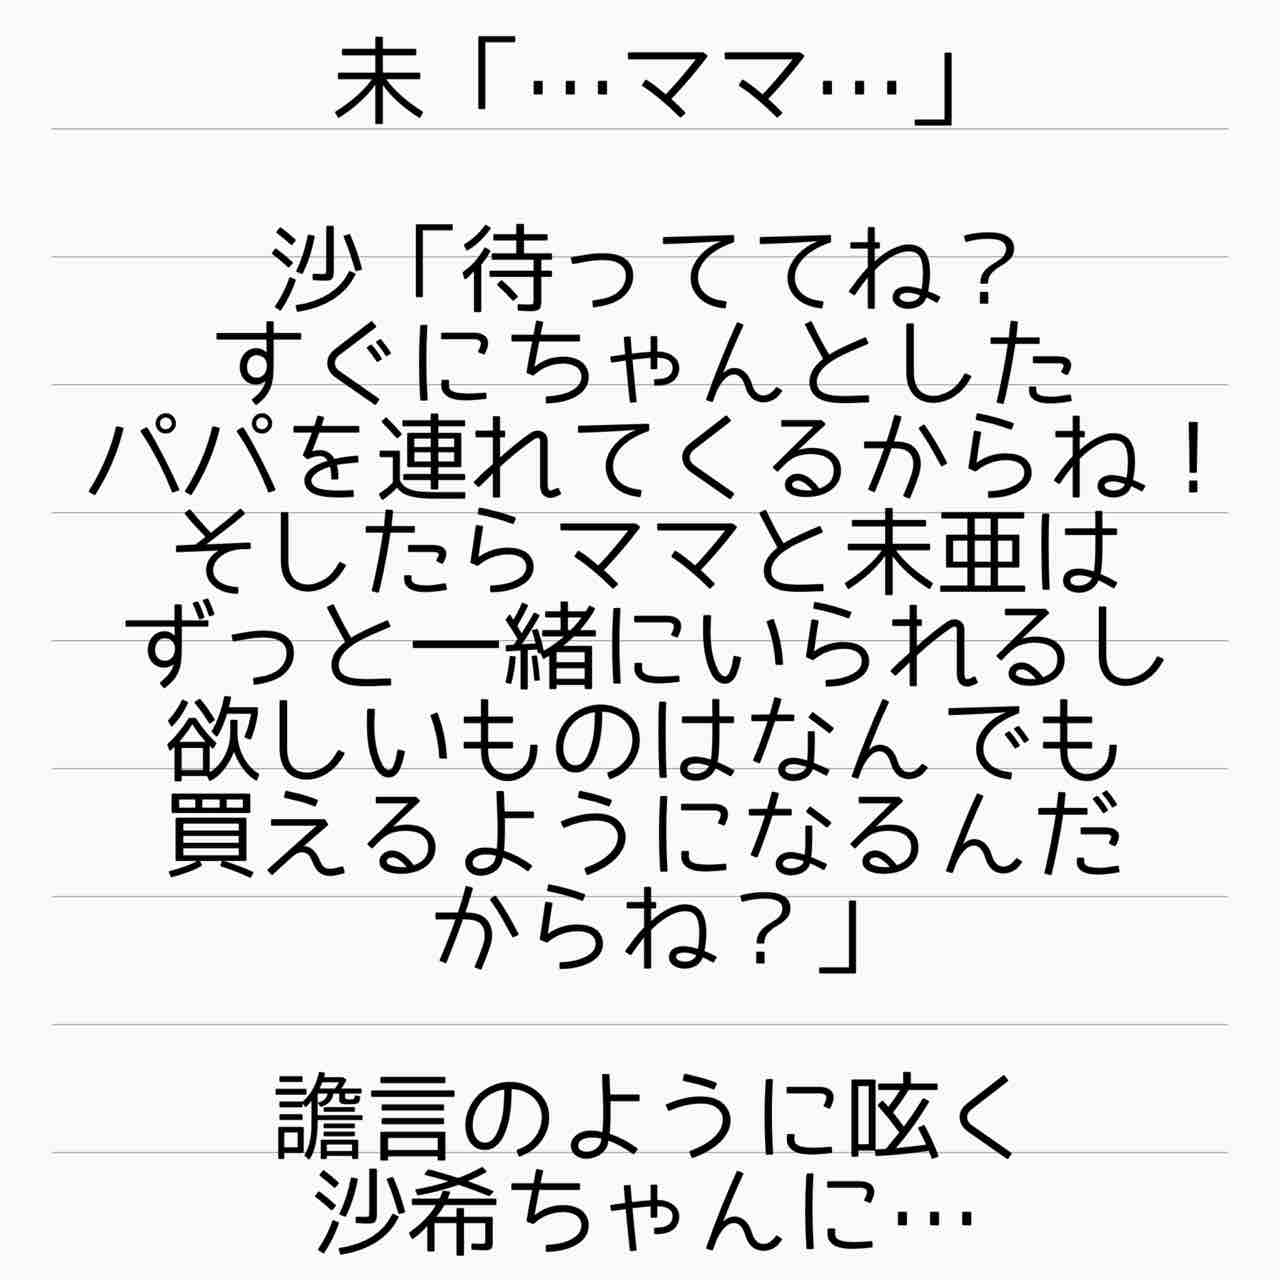 未「…ママ…」
沙「待っててね？
すぐにちゃんとした
パパを連れてくるからね！
そしたらママと未亜は
ずっと一緒にいられるし
欲しいものはなんでも
買えるようになるんだ
からね？」
譫言のように呟く
沙希ちゃんに…